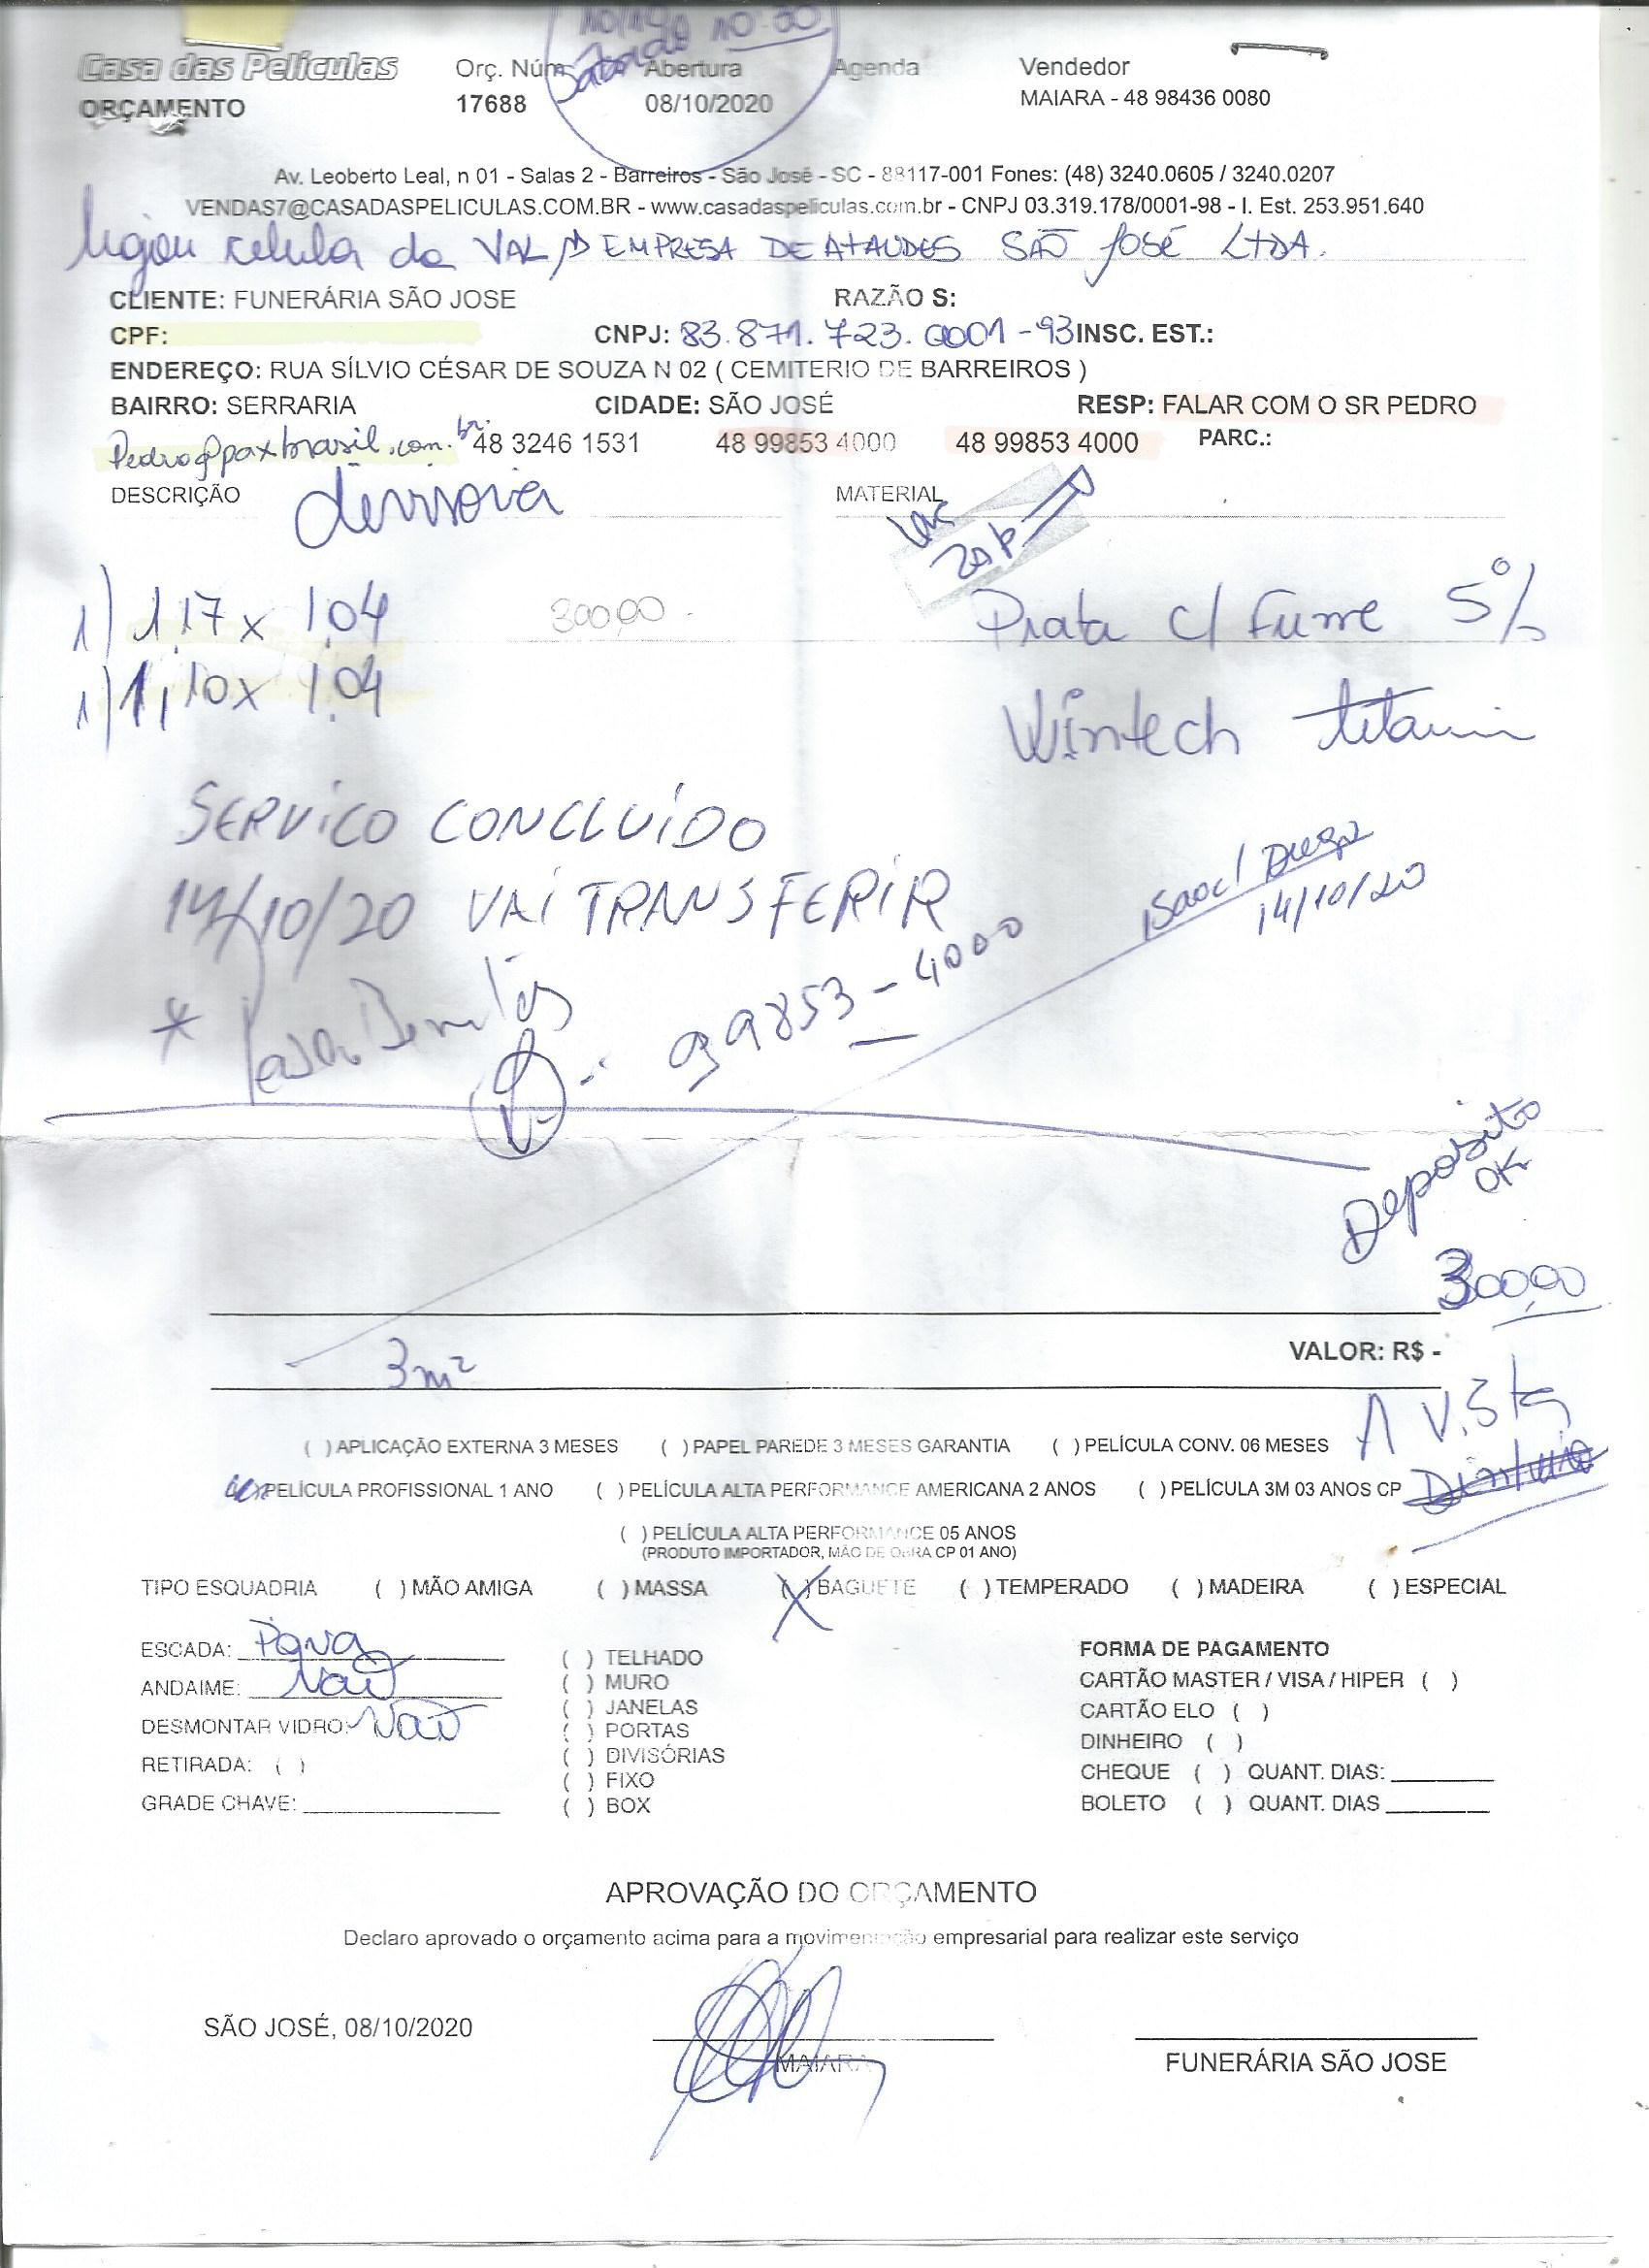 10/10
Sábado 10:30
Casa das Películas
ORÇAMENTO
Orç. Núm Abertura Agenda Vendedor
17688 08/10/2020 MAIARA - 48 98436 0080
Av. Leoberto Leal, n 01 - Salas 2 - Barreiros - São José - SC - 88117-001 Fones: (48) 3240.0605 / 3240.0207
VENDAS7@CASADASPELICULAS.COM.BR - www.casadaspeliculas.com.br - CNPJ 03.319.178/0001-98 - I. Est. 253.951.640
da VAL EMPRESA DE ATAUDES SÃO JOSÉ LTDA.
CLIENTE: FUNERÁRIA SÃO JOSE RAZÃO S:
CPF: CNPJ: 83.871.723.0001-93 INSC. EST.:
ENDEREÇO: RUA SÍLVIO CÉSAR DE SOUZA N 02 ( CEMITERIO DE BARREIROS )
BAIRRO: SERRARIA CIDADE: SÃO JOSÉ RESP: FALAR COM O SR PEDRO
Pedro@paxbrasil.com.br 48 3246 1531 48 99853 4000 48 99853 4000 PARC.:
DESCRIÇÃO MATERIAL
1) 1,17 x 1,04 300,00 Prata c/ Fume 5%
1) 1,10 x 1,04
Wintech
SERVICO CONCLUÍDO
14/10/20 VAI TRANSFERIR
14/10/20
99853-4000
Deposito
OK
300,00
VALOR: R$ -
3m²
A Vista
( ) APLICAÇÃO EXTERNA 3 MESES ( ) PAPEL PAREDE 3 MESES GARANTIA ( ) PELÍCULA CONV. 06 MESES
PELÍCULA PROFISSIONAL 1 ANO ( ) PELÍCULA ALTA PERFORMANCE AMERICANA 2 ANOS ( ) PELÍCULA 3M 03 ANOS CP
( ) PELÍCULA ALTA PERFORMANCE 05 ANOS
(PRODUTO IMPORTADOR, MÃO DE OBRA CP 01 ANO)
TIPO ESQUADRIA ( ) MÃO AMIGA ( ) MASSA (X) BAGUETE ( ) TEMPERADO ( ) MADEIRA ( ) ESPECIAL
ESCADA:
ANDAIME: Não
DESMONTAR VIDRO: Não
RETIRADA: ( )
GRADE CHAVE:
( ) TELHADO
( ) MURO
( ) JANELAS
( ) PORTAS
( ) DIVISÓRIAS
( ) FIXO
( ) BOX
FORMA DE PAGAMENTO
CARTÃO MASTER / VISA / HIPER ( )
CARTÃO ELO ( )
DINHEIRO ( )
CHEQUE ( ) QUANT. DIAS:
BOLETO ( ) QUANT. DIAS
APROVAÇÃO DO ORÇAMENTO
Declaro aprovado o orçamento acima para a movimentação empresarial para realizar este serviço
SÃO JOSÉ, 08/10/2020
MAIARA
FUNERÁRIA SÃO JOSE